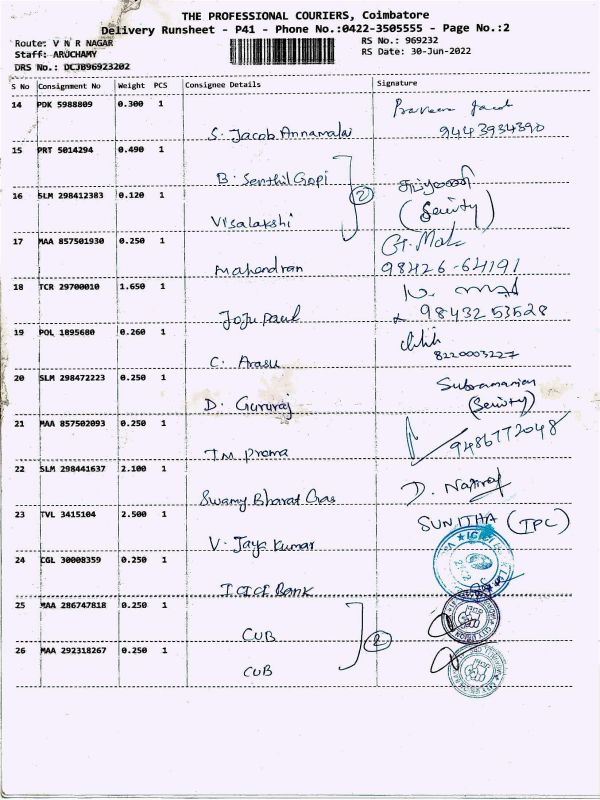 THE PROFESSIONAL COURIERS, Coimbatore
Delivery Runsheet - P41 - Phone No.:0422-3505555 - Page No.:2
Route: V N R NAGAR
RS No.: 969232
Staff: ARUCHAMY
RS Date: 30-Jun-2022
DRS No.: DCJB96923202
S No Consignment No Weight PCS Consignee Details Signature
14 PDK 5988809 0.300 1
S. Jacob Annamalai 9443934390
15 PRT 5014294 0.490 1
B. Senthil Gopi
2
16 SLM 298412383 0.120 1
Visalakshi
17 MAA 857501930 0.250 1
Mahendran 98426-64191
18 TCR 29700010 1.650 1
Joju paul 9843253528
19 POL 1895680 0.260 1
C. Arasu 8220003227
20 SLM 298472223 0.250 1 Subramanian
D. Gururaj
21 MAA 857502093 0.250 1
T.M. Prema 9486772048
22 SLM 298441637 2.100 1
Swamy Bharat Gas
23 TVL 3415104 2.500 1 SUNITHA (IPC)
V. Jaya Kumar
24 CGL 30008359 0.250 1
ICICI Bank
25 MAA 286747818 0.250 1
CUB
2
26 MAA 292318267 0.250 1
CUB